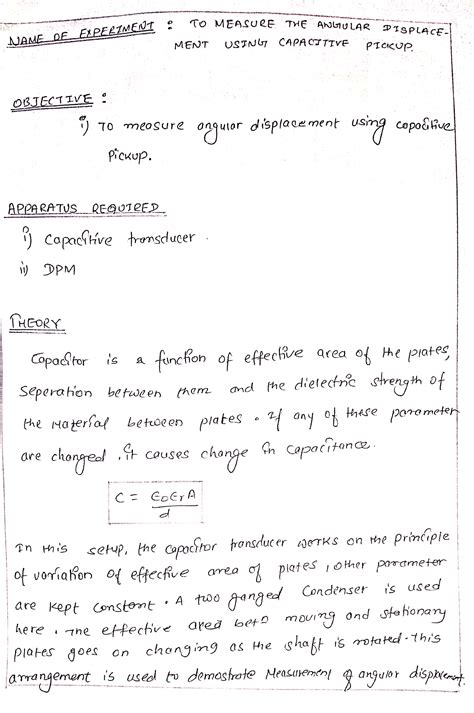 NAME OF EXPERIMENT : TO MEASURE THE ANGULAR DISPLACE-
MENT USING CAPACITIVE PICKUP.
OBJECTIVE :
i) TO measure angular displacement using capacitive
Pickup.
APPARATUS REQUIRED
i) Capacitive transducer .
ii) DPM
THEORY
Capacitor is a function of effective area of the plates,
Seperation between them and the dielectric strength of
the Material between plates . If any of these parameter
are changed . it causes change in capacitance.
C = ε0εrA / d
In this setup, the capacitor transducer works on the principle
of variation of effective area of plates , other parameter
are kept constant . A two ganged Condenser is used
here . The effective area betn moving and stationary
plates goes on changing as the shaft is rotated . This
arrangement is used to demostrate Measurement of angular displacement.